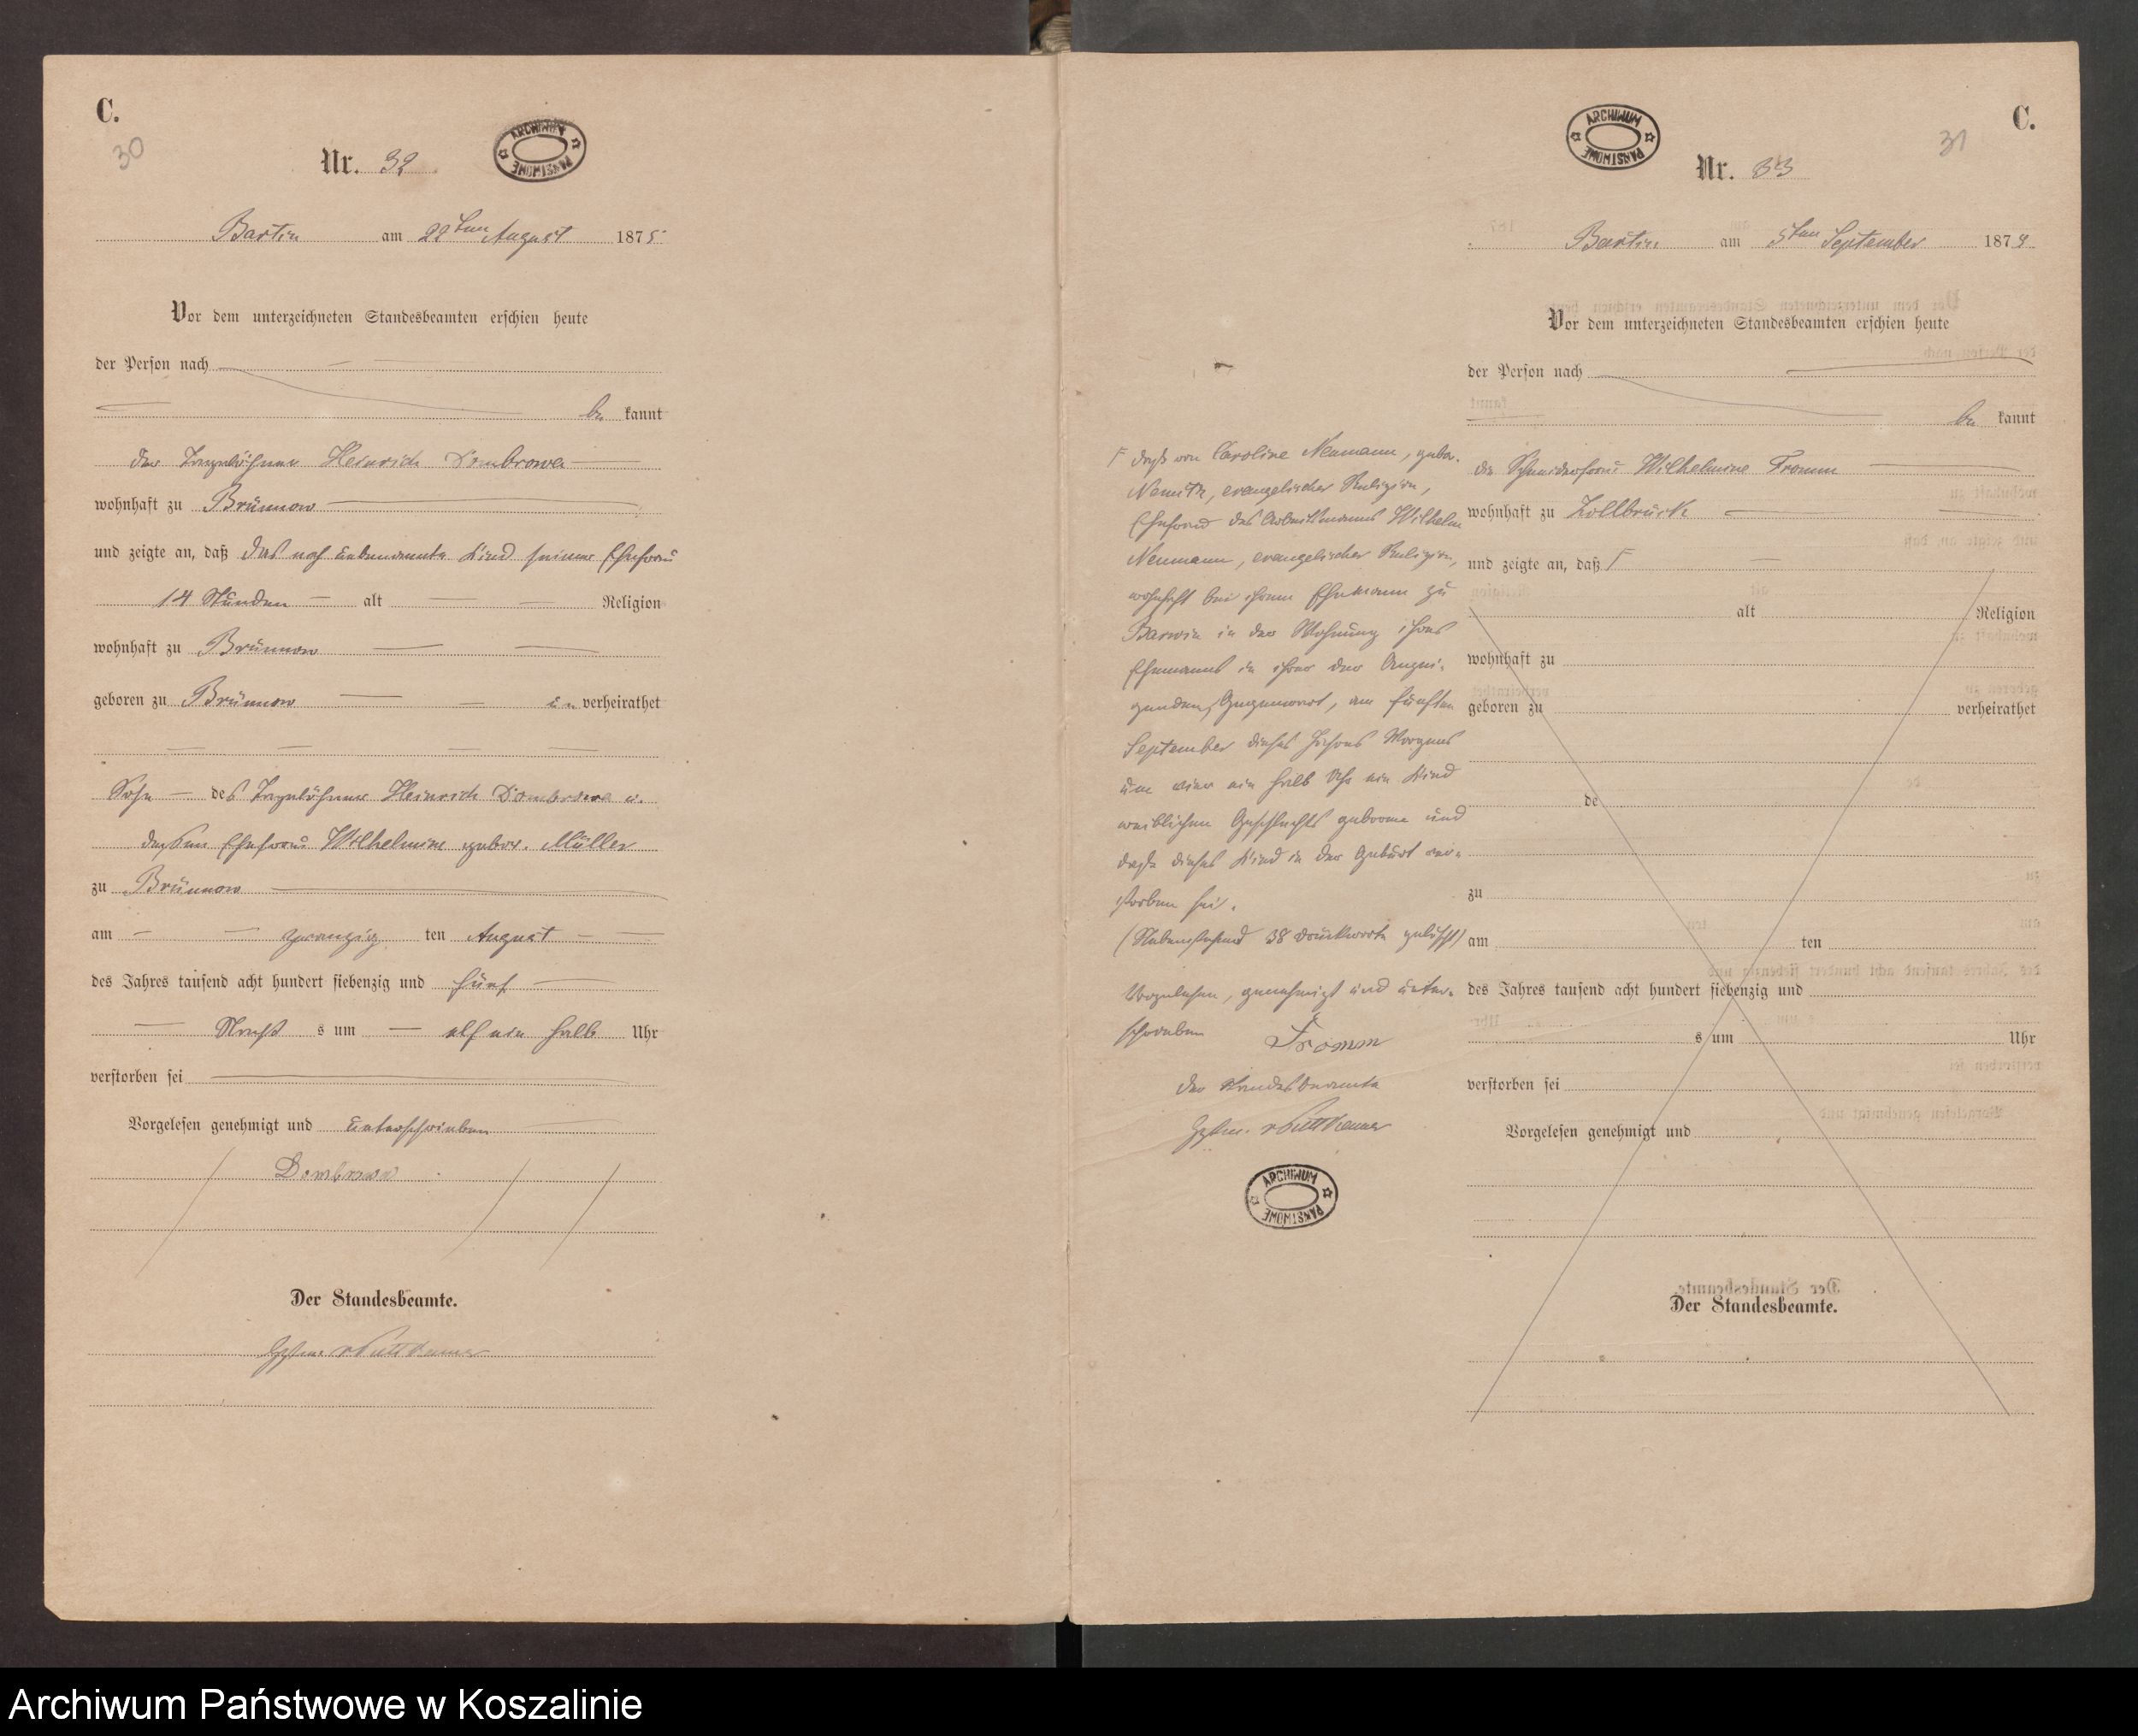 C.
30
Nr. 32
ARCHIWUM PAŃSTWOWE
Bartin am 22ten August 1875
Vor dem unterzeichneten Standesbeamten erschien heute
der Person nach
be kannt
der Tagelöhner Heinrich Dombrowa
wohnhaft zu Brünnow
und zeigte an, daß das noch unbenannte Kind seiner Ehefrau
14 Stunden alt Religion
wohnhaft zu Brünnow
geboren zu Brünnow un verheirathet
Sohn des Tagelöhner Heinrich Dombrowa u.
dessen Ehefrau Wilhelmine gebor. Müller
zu Brünnow
am zwanzig ten August
des Jahres tausend acht hundert siebenzig und fünf
Nacht s um elf ein halb Uhr
verstorben sei
Vorgelesen genehmigt und unterschrieben
Dombrowa
Der Standesbeamte.
v Puttkamer
C.
31
ARCHIWUM PAŃSTWOWE
Nr. 33
Bartin am 5ten September 187
Vor dem unterzeichneten Standesbeamten erschien heute
der Person nach
be kannt
die Schneiderfrau Wilhelmine Fromm
wohnhaft zu Zollbrück
und zeigte an, daß Γ
alt Religion
wohnhaft zu
geboren zu verheirathet
de
zu
am ten
des Jahres tausend acht hundert siebenzig und
s um Uhr
verstorben sei
Vorgelesen genehmigt und
Der Standesbeamte.
Γ daß von Caroline Neumann, gebor.
Nemitz, evangelischer Religion,
Ehefrau des Arbeitsmanns Wilhelm
Neumann, evangelischer Religion,
wohnhaft bei ihrem Ehemann zu
Barwin in der Wohnung ihres
Ehemanns in ihrer der Anzei-
genden, Gegenwart, am fünften
September dieses Jahres Morgens
um vier ein halb Uhr ein Kind
weiblichen Geschlechts geboren und
daß dieses Kind in der Geburt ver-
storben sei.
(Nebenstehend 38 Druckworte gelöscht)
Vorgelesen, genehmigt und unter-
schrieben
Fromm
Der Standesbeamte
v Puttkamer
ARCHIWUM PAŃSTWOWE
Archiwum Państwowe w Koszalinie